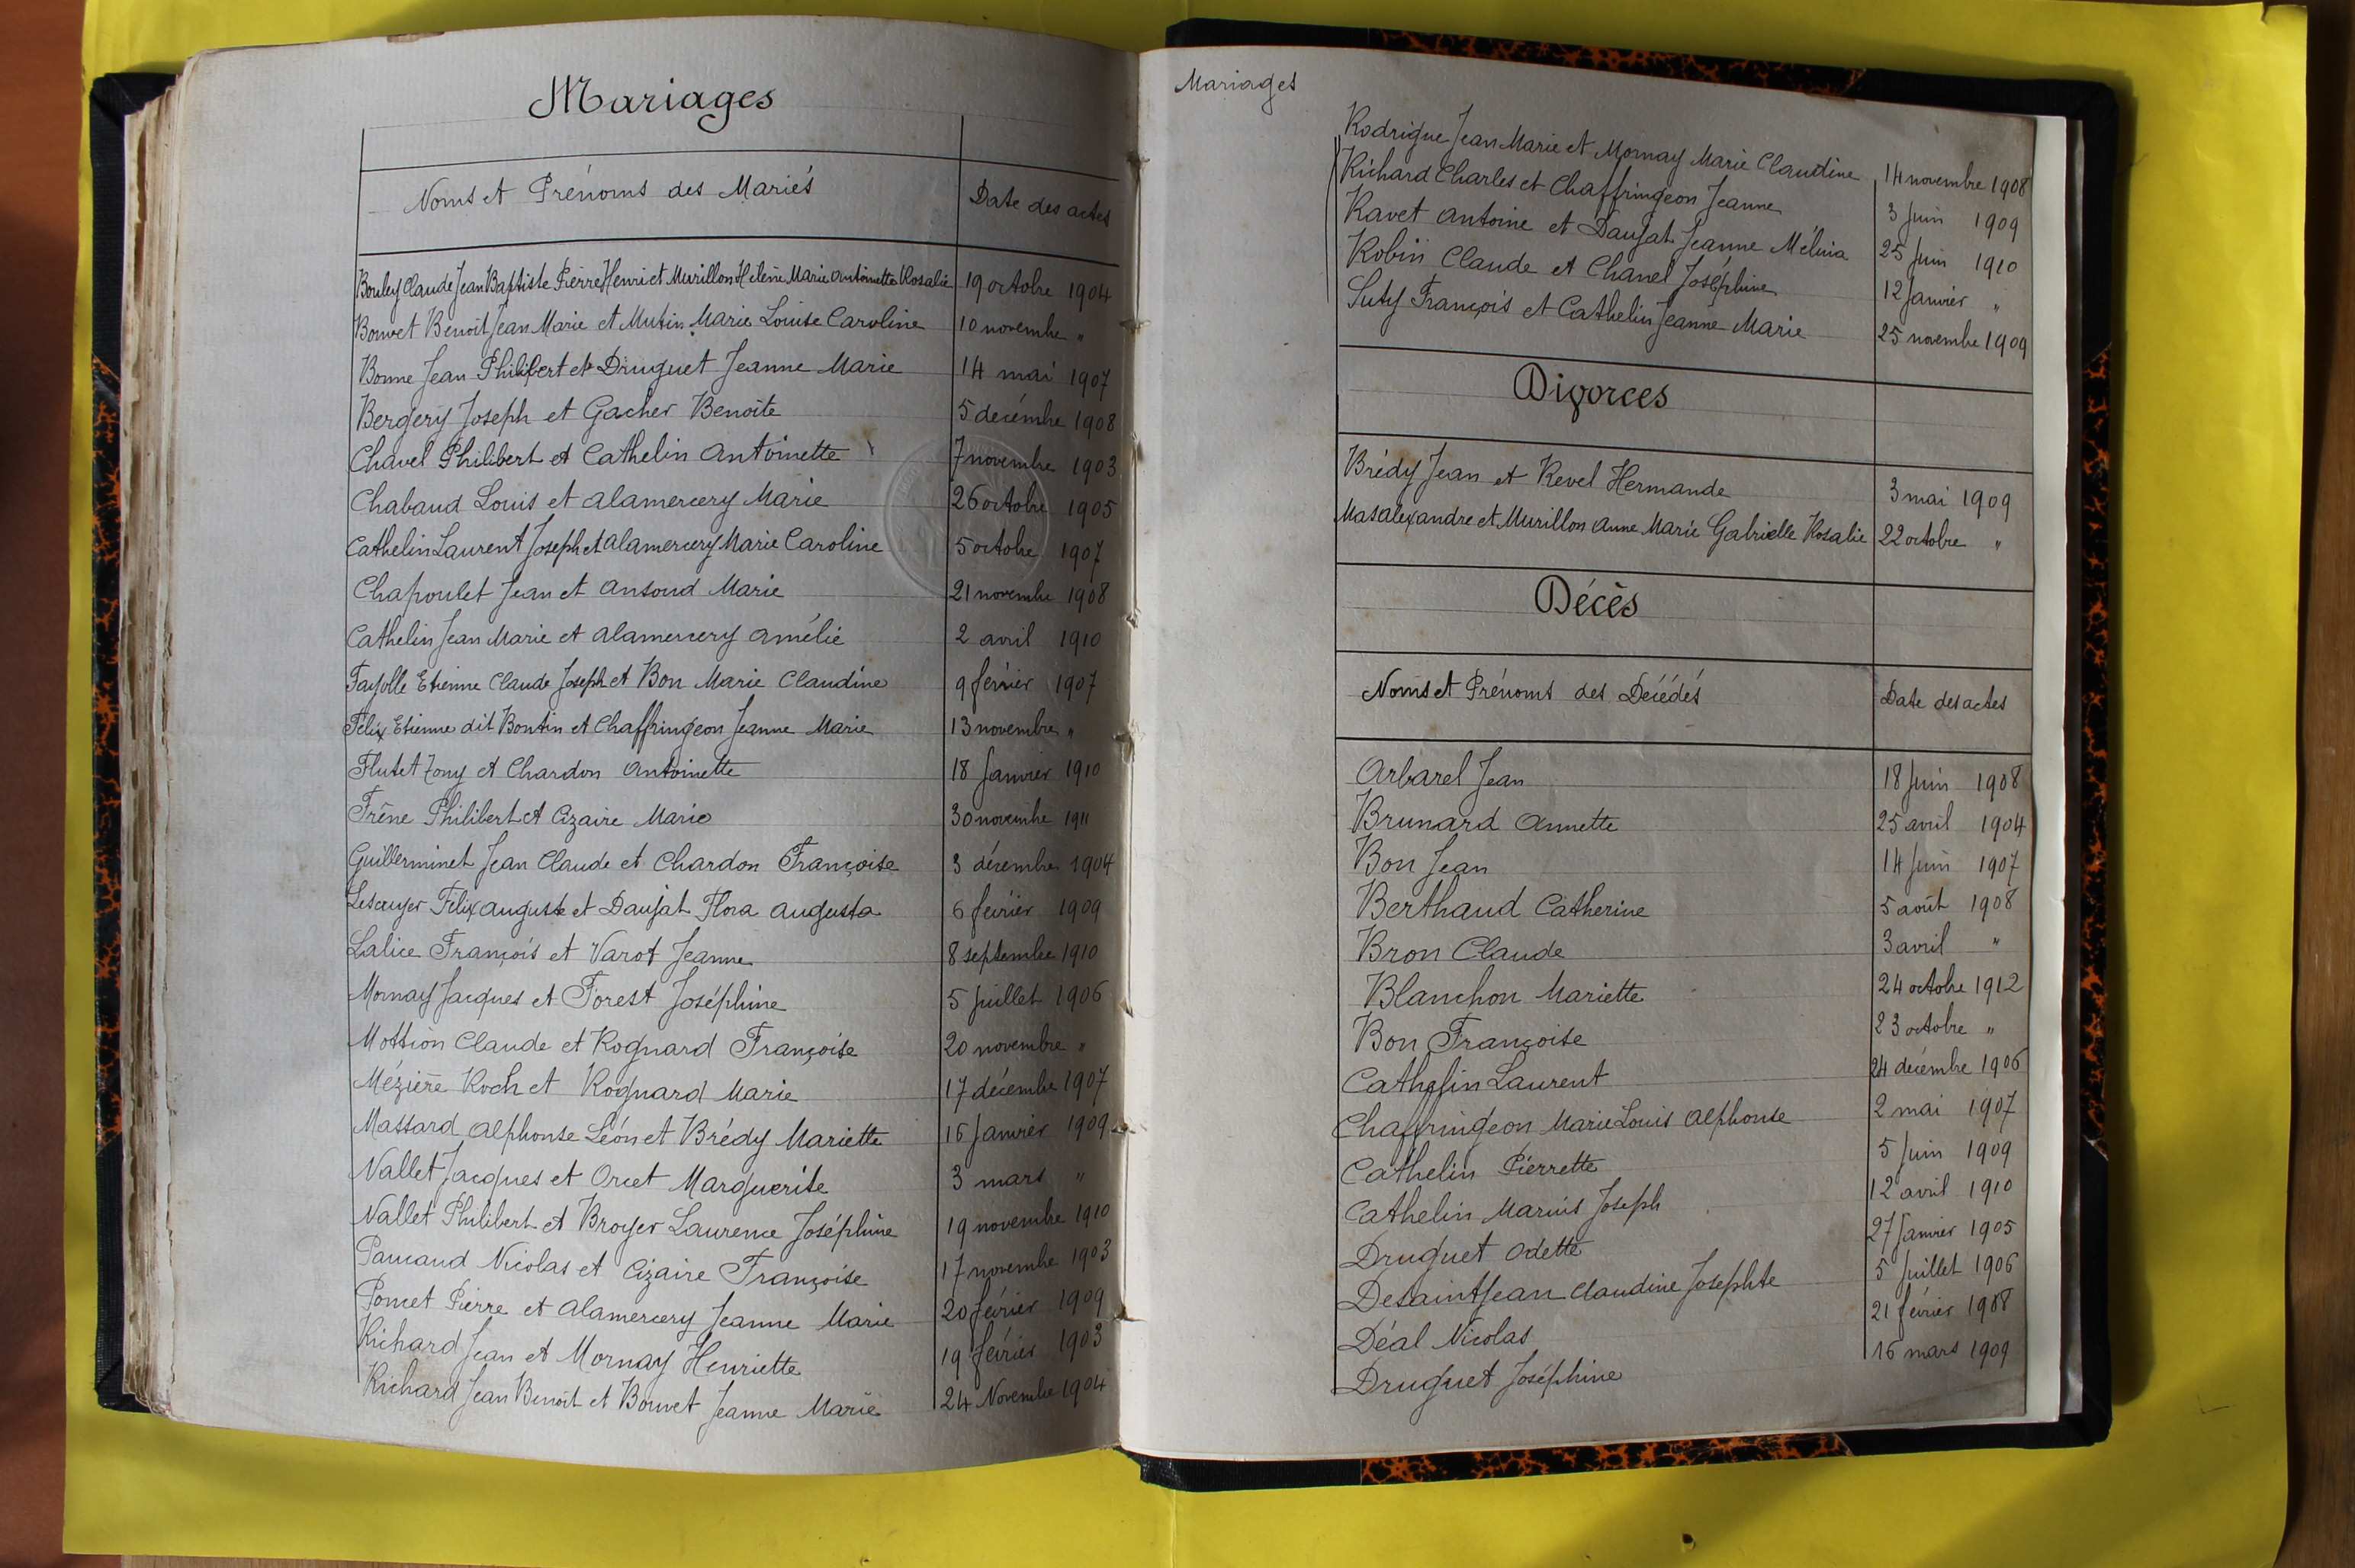 Mariages
Noms et Prénoms des Mariés Date des actes
Bouley Claude Jean Baptiste Pierre Henri et Murillon Hélène Marie Antoinette Rosalie 19 octobre 1904
Bouvet Benoît Jean Marie et Mutin Marie Louise Caroline 10 novembre "
Bonne Jean Philibert et Druguet Jeanne Marie 14 mai 1907
Bergery Joseph et Gacher Benoîte 5 décembre 1908
Chavel Philibert et Cathelin Antoinette 7 novembre 1903
Chabaud Louis et Alamercery Marie 26 octobre 1905
Cathelin Laurent Joseph et Alamercery Marie Caroline 5 octobre 1907
Chapoulet Jean et Ansoud Marie 21 novembre 1908
Cathelin Jean Marie et Alamercery Amélie 2 avril 1910
Fayolle Etienne Claude Joseph et Bon Marie Claudine 9 février 1907
Félix Etienne dit Bontin et Chaffringeon Jeanne Marie 13 novembre "
Flutet Tony et Chardon Antoinette 18 Janvier 1910
Frêne Philibert et Cizaire Marie 30 novembre 1911
Guillerminet Jean Claude et Chardon Françoise 3 décembre 1904
Lesauyer Félix Auguste et Daujat Flora Augusta 6 février 1909
Lalice François et Varot Jeanne 8 septembre 1910
Mornay Jacques et Forest Joséphine 5 Juillet 1906
Mottion Claude et Rognard Françoise 20 novembre "
Mézière Roch et Rognard Marie 17 décembre 1907
Massard Alphonse Léon et Brédy Mariette 16 Janvier 1909
Nallet Jacques et Orcet Marguerite 3 mars "
Nallet Philibert et Broyer Laurence Joséphine 19 novembre 1910
Paucaud Nicolas et Cizaire Françoise 17 novembre 1903
Poncet Pierre et Alamercery Jeanne Marie 20 février 1909
Richard Jean et Mornay Henriette 19 février 1903
Richard Jean Benoit et Bouvet Jeanne Marie 24 Novembre 1904
Mariages
Rodrigue Jean Marie et Mornay Marie Claudine 14 novembre 1908
Richard Charles et Chaffringeon Jeanne 3 Juin 1909
Ravet Antoine et Daujat Jeanne Mélina 25 Juin 1910
Robin Claude et Chanel Joséphine 12 Janvier "
Suty François et Cathelin Jeanne Marie 25 novembre 1909
Divorces
Brédy Jean et Revel Hermande 3 mai 1909
Mas Alexandre et Murillon Anne Marie Gabrielle Rosalie 22 octobre "
Décès
Noms et Prénoms des Décédés Date des actes
Arbarel Jean 18 Juin 1908
Brunard Annette 25 avril 1904
Bon Jean 14 Juin 1907
Berthaud Catherine 5 août 1908
Bron Claude 3 avril "
Blanchon Mariette 24 octobre 1912
Bon Françoise 23 octobre "
Cathelin Laurent 24 décembre 1906
Chaffringeon Marie Louis Alphonse 2 mai 1907
Cathelin Pierrette 5 Juin 1909
Cathelin Marius Joseph 12 avril 1910
Druguet Odette 27 Janvier 1905
Desaintjean Claudine Josephte 5 Juillet 1906
Déal Nicolas 21 février 1908
Druguet Joséphine 16 mars 1909